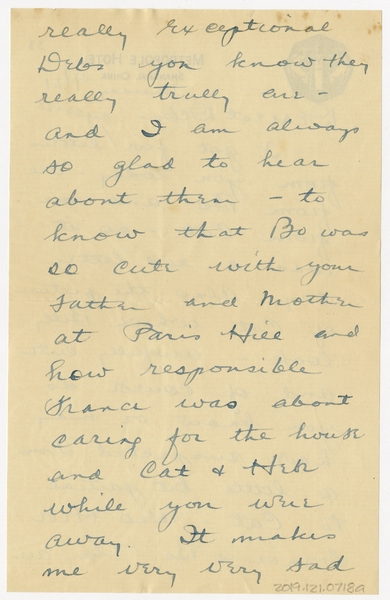 really exceptional
Debs you know they
really trully are -
and I am always
so glad to hear
about them - to
know that Bo was
so cute with your
Father and Mother
at Paris Hill and
how responsible
France was about
caring for the house
and Cat &
while you were
away. It makes
me very very sad
2019.121.0718a